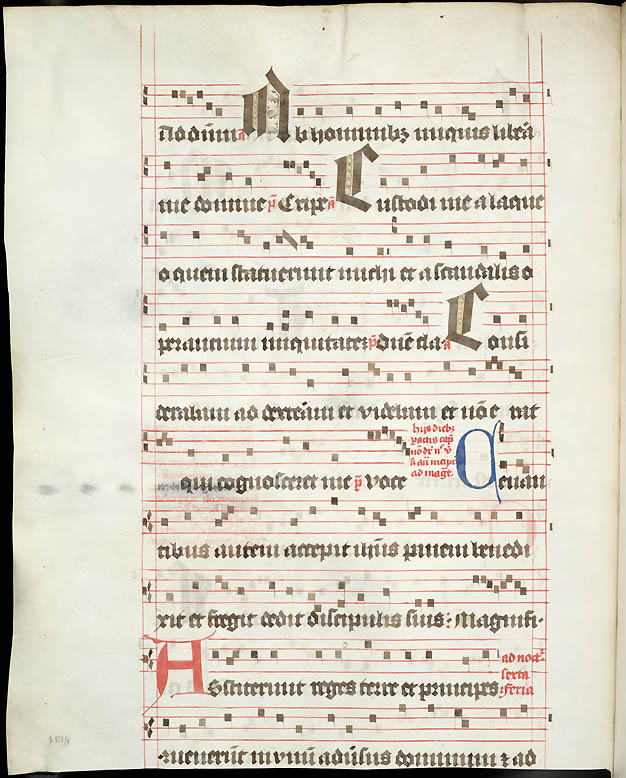 Ad dn̄m a Ab hominibꝫ iniquis libe͂a
me domine p̄ Eripe a͂ Custodi me a laque
o quem statuerunt michi et a scandalis o
perantium iniquitatem p̄ dn̄e cla a Consi
derabam ad dexteram et videbam et nō e rat
qui cognosceret me p̄ voce
hijs diebꝫ
ad mag̅t
Cenan
tibus autem accepit ih̄us panem benedi
xit et fregit dedit discipulis suis: Magnifi-
ad noct̄
sexta
feria
Astiterunt reges terre et principes
-uenerūt in vnum adūsus dominum ⁊ ad